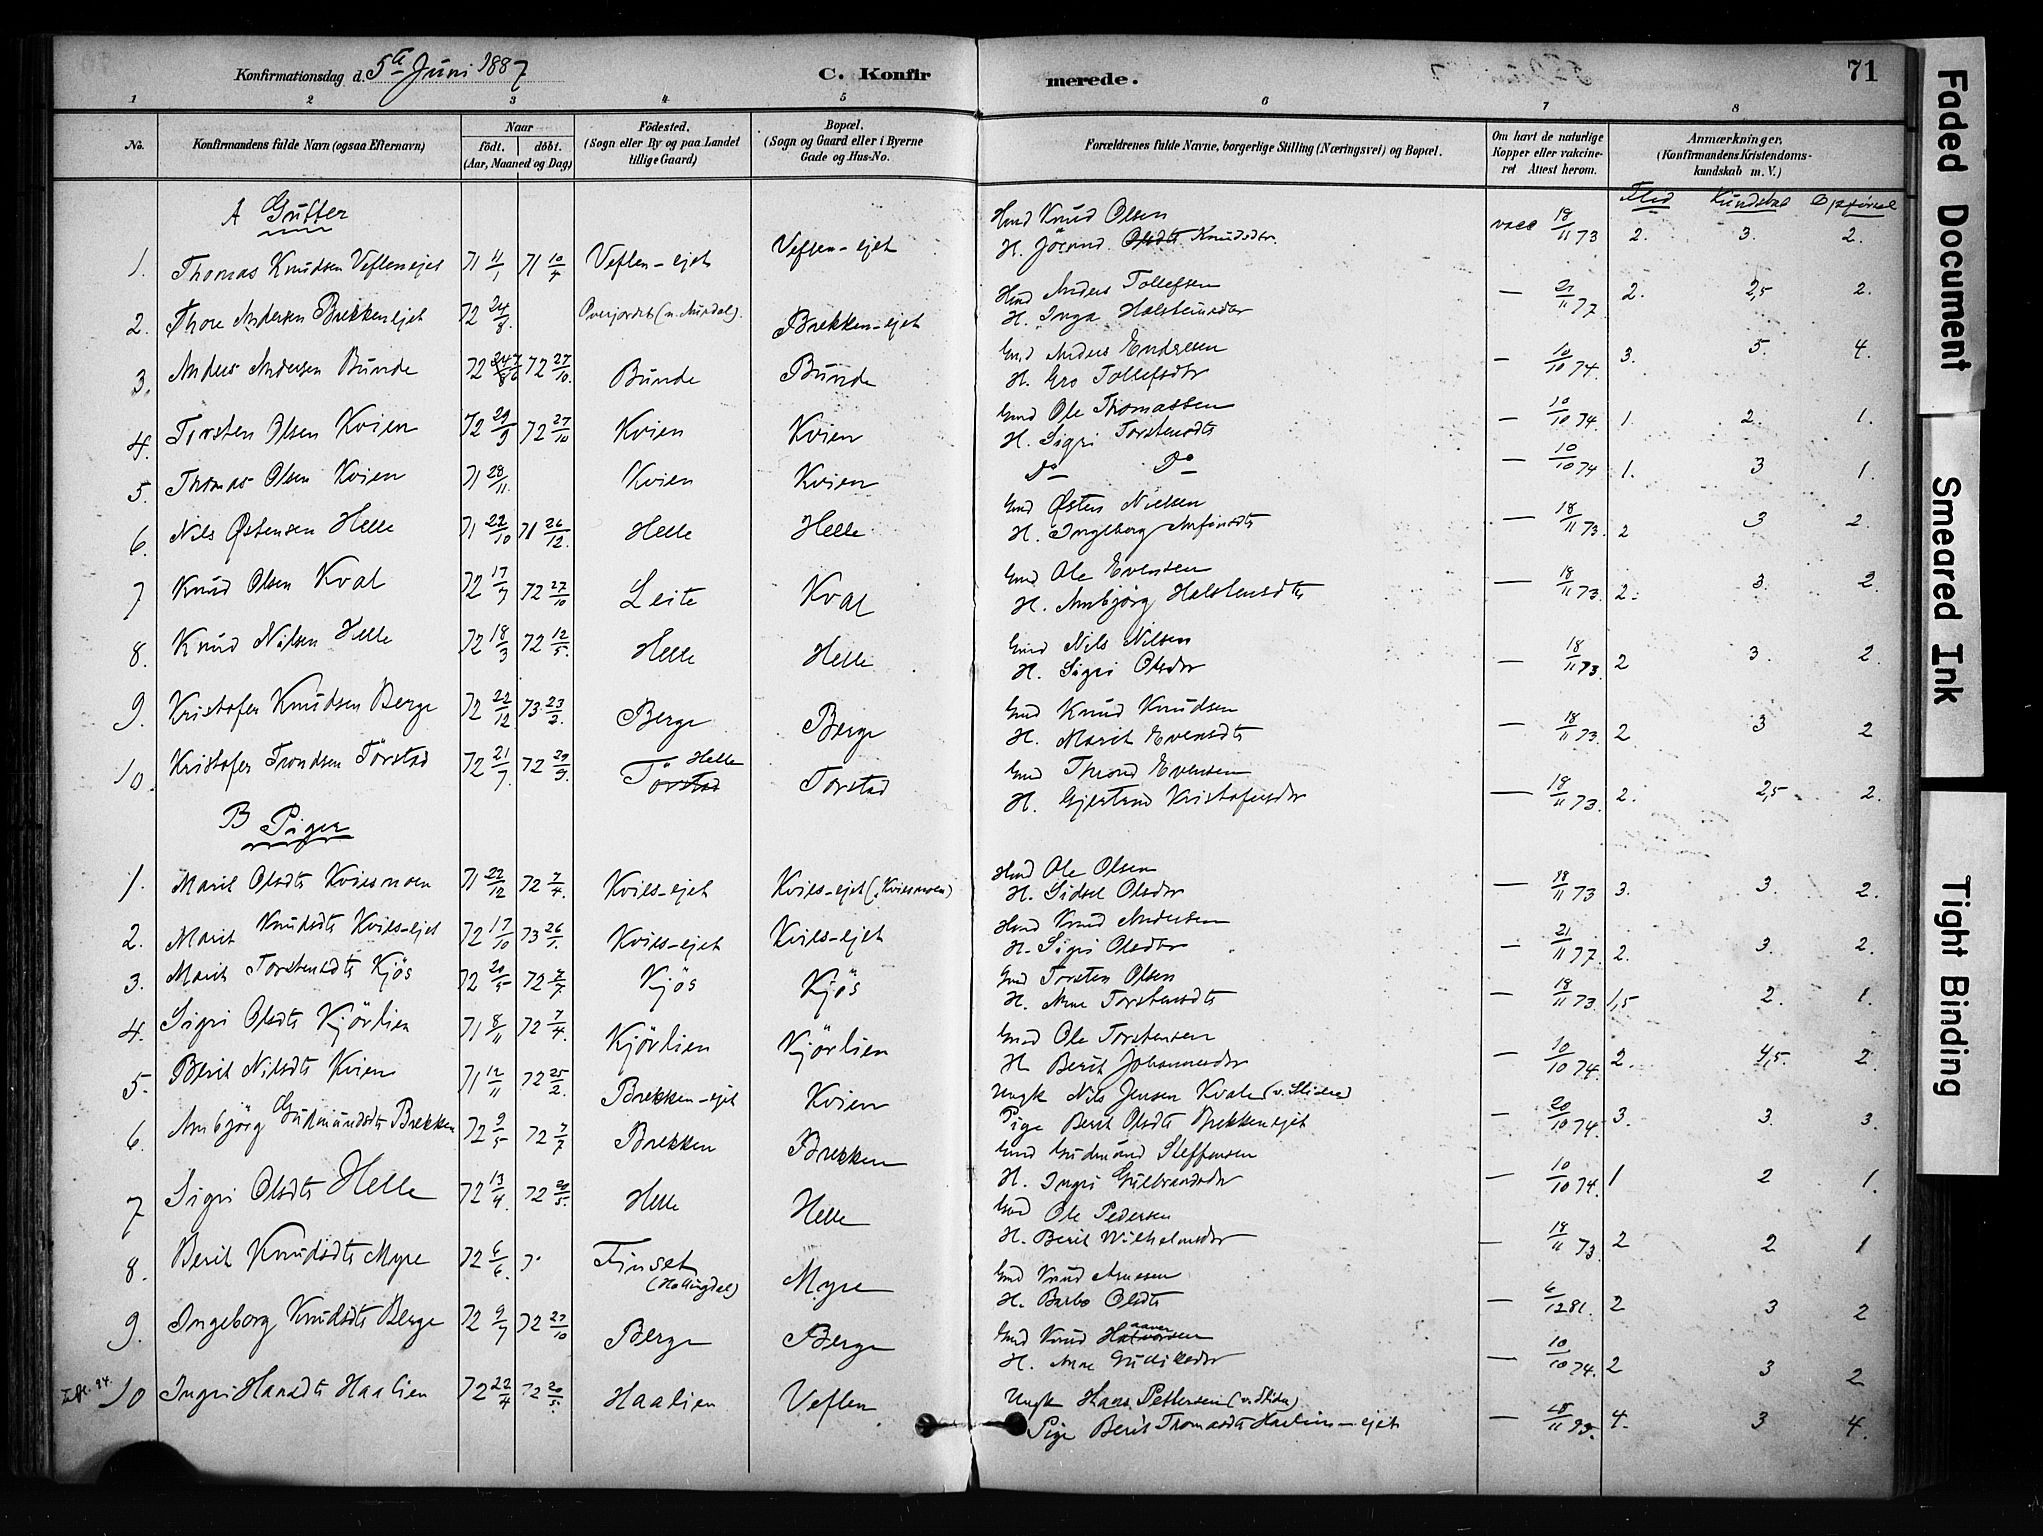 Konfirmationsdag d. 5te Juni 1887
C. Konfirmerede.
71
1 2 3 4 5 6 7 8
No.
Konfirmandens fulde Navn (ogsaa Efternavn)
Naar
födt. döbt.
(Aar, Maaned og Dag)
Födested.
(Sogn eller By og paa Landet
tillige Gaard)
Bopæl.
(Sogn og Gaard eller i Byerne
Gade og Hus-No.
Forældrenes fulde Navne, borgerlige Stilling (Næringsvei) og Bopæl.
Om havt de naturlige
Kopper eller vakcine-
ret Attest herom.
Anmærkninger,
(Konfirmandens Kristendoms-
kundskab m. V.)
Flid Kundskab Opførsel
A Gutter
1. Thomas Knudsen Veflenejet 71 11/1 71 10/4 Veflen-ejet Veflen-ejet
Hmd Knud Olsen
H. Jörand Olsdtr Knudsdtr. vacc 18/11 73 2. 3. 2.
2. Thore Andersen Brekkenejet 72 24/8. Brekken-ejet
Hmd Anders Tollefsen
H. Inga Halstensdtr — 21/11 77 2. 2,5 2.
3. Anders Andersen Bunde 72 72 27/10. Bunde Bunde
Gmd Anders Endresen
H. Gro Tollefsdtr — 10/10 74. 3. 5. 4.
4. Torsten Olsen Kvien 72 29/9 72 27/10 Kvien Kvien
Gmd Ole Thomassen
H. Sigri Torstensdtr — 10/10 74. 1. 2. 1.
5. Thomas Olsen Kvien 71 28/11. Kvien Kvien
Do Do — 10/10 74 1. 3 1.
6. Nils Østensen Helle 71 22/10 71 26/12. Helle Helle
Gmd Østen Nielsen
H. Ingeborg Arfinsdtr — 18/11 73. 2 3 2.
7 Knud Olsen Kval 72 17/7 72 27/10 Leite Kval
Gmd Ole Evensen
H. Ambjörg Halstensdtr — 18/11 73. 2. 3. 2
8. Knud Nilsen Helle 72 18/3 72 12/5. Helle Helle
Gmd Nils Nilsen
H. Sigri Olsdtr — 18/11 73. 2 3. 2.
9. Kristofer Knudsen Berge 72 22/12 73 23/2. Berge Berge
Gmd Knud Knudsen
H. Marit Evensdtr — 18/11 73. 2 3 2
10. Kristofer Trondsen Törstad 72 21/7. 72 29/9. Törstad Helle Torstad
Gmd Thrond Evensen
H. Gjertrud Kristofersdtr — 18/11 73. 2. 2,5 2.
B Piger
1. Marit Olsdtr Kviesmoen 71 22/12 72 7/4. Kvies-ejet Kvies-ejet (Kviesmoen)
Hmd Ole Olsen
H. Sidsel Olsdtr — 18/11 73 3. 3. 2.
2. Marit Knudsdtr Kvies-ejet 72 17/10 73 26/1. Kvies-ejet Kvies-ejet
Hmd Knud Andersen
H. Sigri Olsdtr — 21/11 77. 2. 3. 2.
3. Marit Torstensdtr Kjös 72 20/5 72 7/7 Kjös Kjös
Gmd Torsten Olsen
H. Anne Torstensdtr — 18/11 73. 1,5 2. 1.
4. Sigri Olsdtr Kjörlien 71 8/11 72 7/4. Kjörlien Kjörlien
Gmd Ole Torstensen
H. Berit Johannesdtr — 10/10 74. 2. 4,5. 2
5. Berit Nilsdtr Kvien 71 12/11 72 25/2. Brekken-ejet Kvien
Ungk Nils Jensen Kvale (v. Slidre)
Pige Berit Olsdtr Brekkenejet — 20/10 74. 3. 3. 3.
6. Ambjörg Gudmundsdtr Brekken 72 9/5 72 7/7 Brekken Brekken
Gmd Gudmund Steffensen
H. Ingri Gulbrandsdtr — 10/10 74. 1 2 1.
7 Sigri Olsdtr Helle 72 13/4. 72 20/5. Helle Helle
Gmd Ole Pedersen
H. Berit Wilhelmsdtr — 18/11 73. 2 2 1
8. Berit Knudsdtr Myre 72 6/6. Finset
(Hallingdal) Myre
Gmd Knud Arnesen
H. Barbo Olsdtr — 6/12 81. 2 3 2
9. Ingeborg Knudsdtr Berge 72 9/7 72 27/10 Berge Berge
Gmd Knud Halvorsen
H. Anne Gulliksdtr — 10/10 74. 2 3 2
10 Ingri Hansdtr Haalien 72 22/4 72 20/5. Haalien Veflen
Ungk Hans Pettersen (v. Slidre)
Pige Berit Thomasdtr Haaliens-ejet — 4. 3 4.
Faded Document
Smeared Ink
Tight Binding